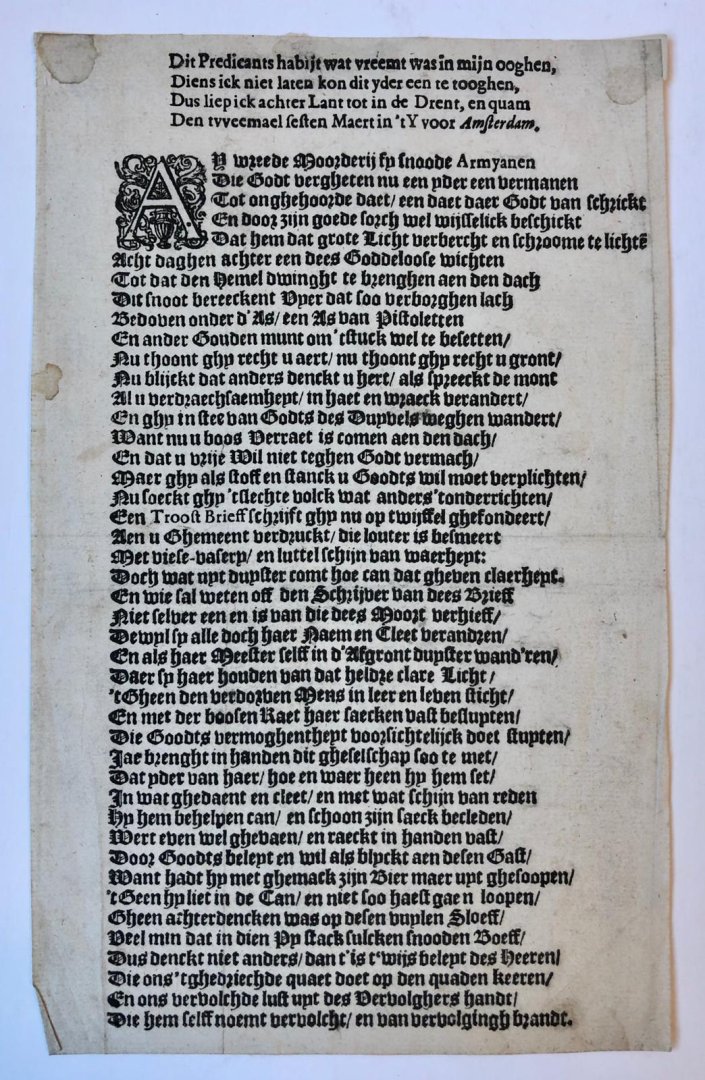 Dit Predicants habijt wat vreemt was in mijn ooghen,
Diens ick niet laten kon dit yder een te tooghen,
Dus liep ick achter Lant tot in de Drent, en quam
Den tvveemael sesten Maert in 'tY voor Amsterdam.
AY wreede Moorderij sy snoode Armyanen
Die Godt vergheten nu een yder een vermanen
Tot onghehoorde daet/ een daet daer Godt van schrickt
En door zijn goede sorch wel wijsselick beschickt
Dat hem dat grote Licht verbercht en schroome te lichtē
Acht daghen achter een dees Goddeloose wichten
Tot dat den Hemel dwinght te brenghen aen den dach
Dit snoot bereeckent Vyer dat soo verborghen lach
Bedoven onder d'As/ een As van Pistoletten
En ander Gouden munt om 'tstuck wel te besetten/
Nu thoont ghy recht u aert/ nu thoont ghy recht u gront/
Nu blijckt dat anders denckt u hert/ als spreeckt de mont
Al u verdraechsaemheyt/ in haet en wraeck verandert/
En ghy in stee van Godts des Duyvels weghen wandert/
Want nu u boos Verraet is comen aen den dach/
En dat u vrije Wil niet teghen Godt vermach/
Maer ghy als stoff en stanck u Goodts wil moet verplichten/
Nu soeckt ghy 'tslechte volck wat anders 'tonderrichten/
Een Troost Brieff schrijft ghy nu op twijffel ghefondeert/
Aen u Ghemeent verdruckt/ die louter is besmeert
Met viese-vasery/ en luttel schijn van waerheyt:
Doch wat uyt duyster comt hoe can dat gheven claerheyt.
En wie sal weten off den Schrijver van dees Brieff
Niet selver een en is van die dees Moort verhieff/
Dewyl sy alle doch haer Naem en Cleet verandren/
En als haer Meester self in d'Afgront duyster wand'ren/
Daer sy haer houden van dat heldre clare Licht/
'tGheen den verdorven Mens in leer en leven sticht/
En met der boosen Raet haer saecken vast besluyten/
Die Goodts vermoghentheyt voorsichtelijck doet stuyten/
Jae brenght in handen dit gheselschap soo te met/
Dat yder van haer/ hoe en waer heen hy hem set/
In wat ghedaent en cleet/ en met wat schijn van reden
Hy hem behelpen can/ en schoon zijn saeck becleden/
Wert even wel ghevaen/ en raeckt in handen vast/
Door Goodts beleyt en wil als blyckt aen desen Gast/
Want hadt hy met ghemack zijn Bier maer uyt ghesoopen/
'tGeen hy liet in de Can/ en niet soo haest gaen loopen/
Gheen achterdencken was op desen vuylen Sloeff/
Veel min dat in dien Py stack sulcken snooden Boeff/
Dus denckt niet anders/ dan t'is t'wijs beleyt des Heeren/
Die ons 'tghedriechde quaet doet op den quaden keeren/
En ons vervolchde lust uyt des Vervolghers handt/
Die hem selff noemt vervolcht/ en van vervolgingh brandt.